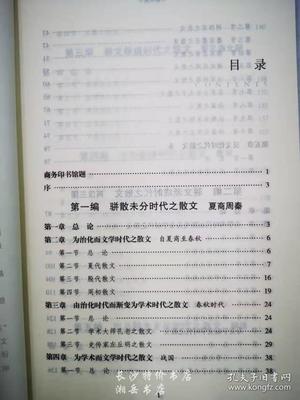 目 录
商务印书馆题 1
序 3
第一编 骈散未分时代之散文 夏商周秦
第一章 总论 3
第二章 为治化而文学时代之散文 自夏商至春秋 6
第一节 总论 6
第二节 夏代散文 7
第三节 殷代散文 9
第四节 周初散文 16
第三章 由治化时代而渐变为学术时代之散文 春秋时代 24
第一节 总论 24
第二节 学术大师孔老之散文 26
第三节 史传家左丘明之散文 29
第四章 为学术而文学时代之散文 战国 38
第一节 总论 38
1
长沙特价书店
湘岳书店
孔夫子旧书网